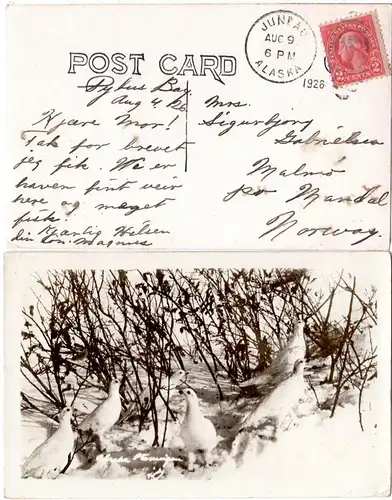 JUNEAU
AUG 9
6 PM
ALASKA
1926
2 CENTS 2
POST CARD
Pybus Bay
Aug 4. 26
Kjære Mor!
Tak for brevet
jeg fik. We er
haven fint veir
here og meget
fisk.
Kjærlig Hilsen
din son. Magnus
Mrs.
Sigurbjorg
Gabrielsen
Malmö
por Mandal
Norway.
Alaska Ptarmigan